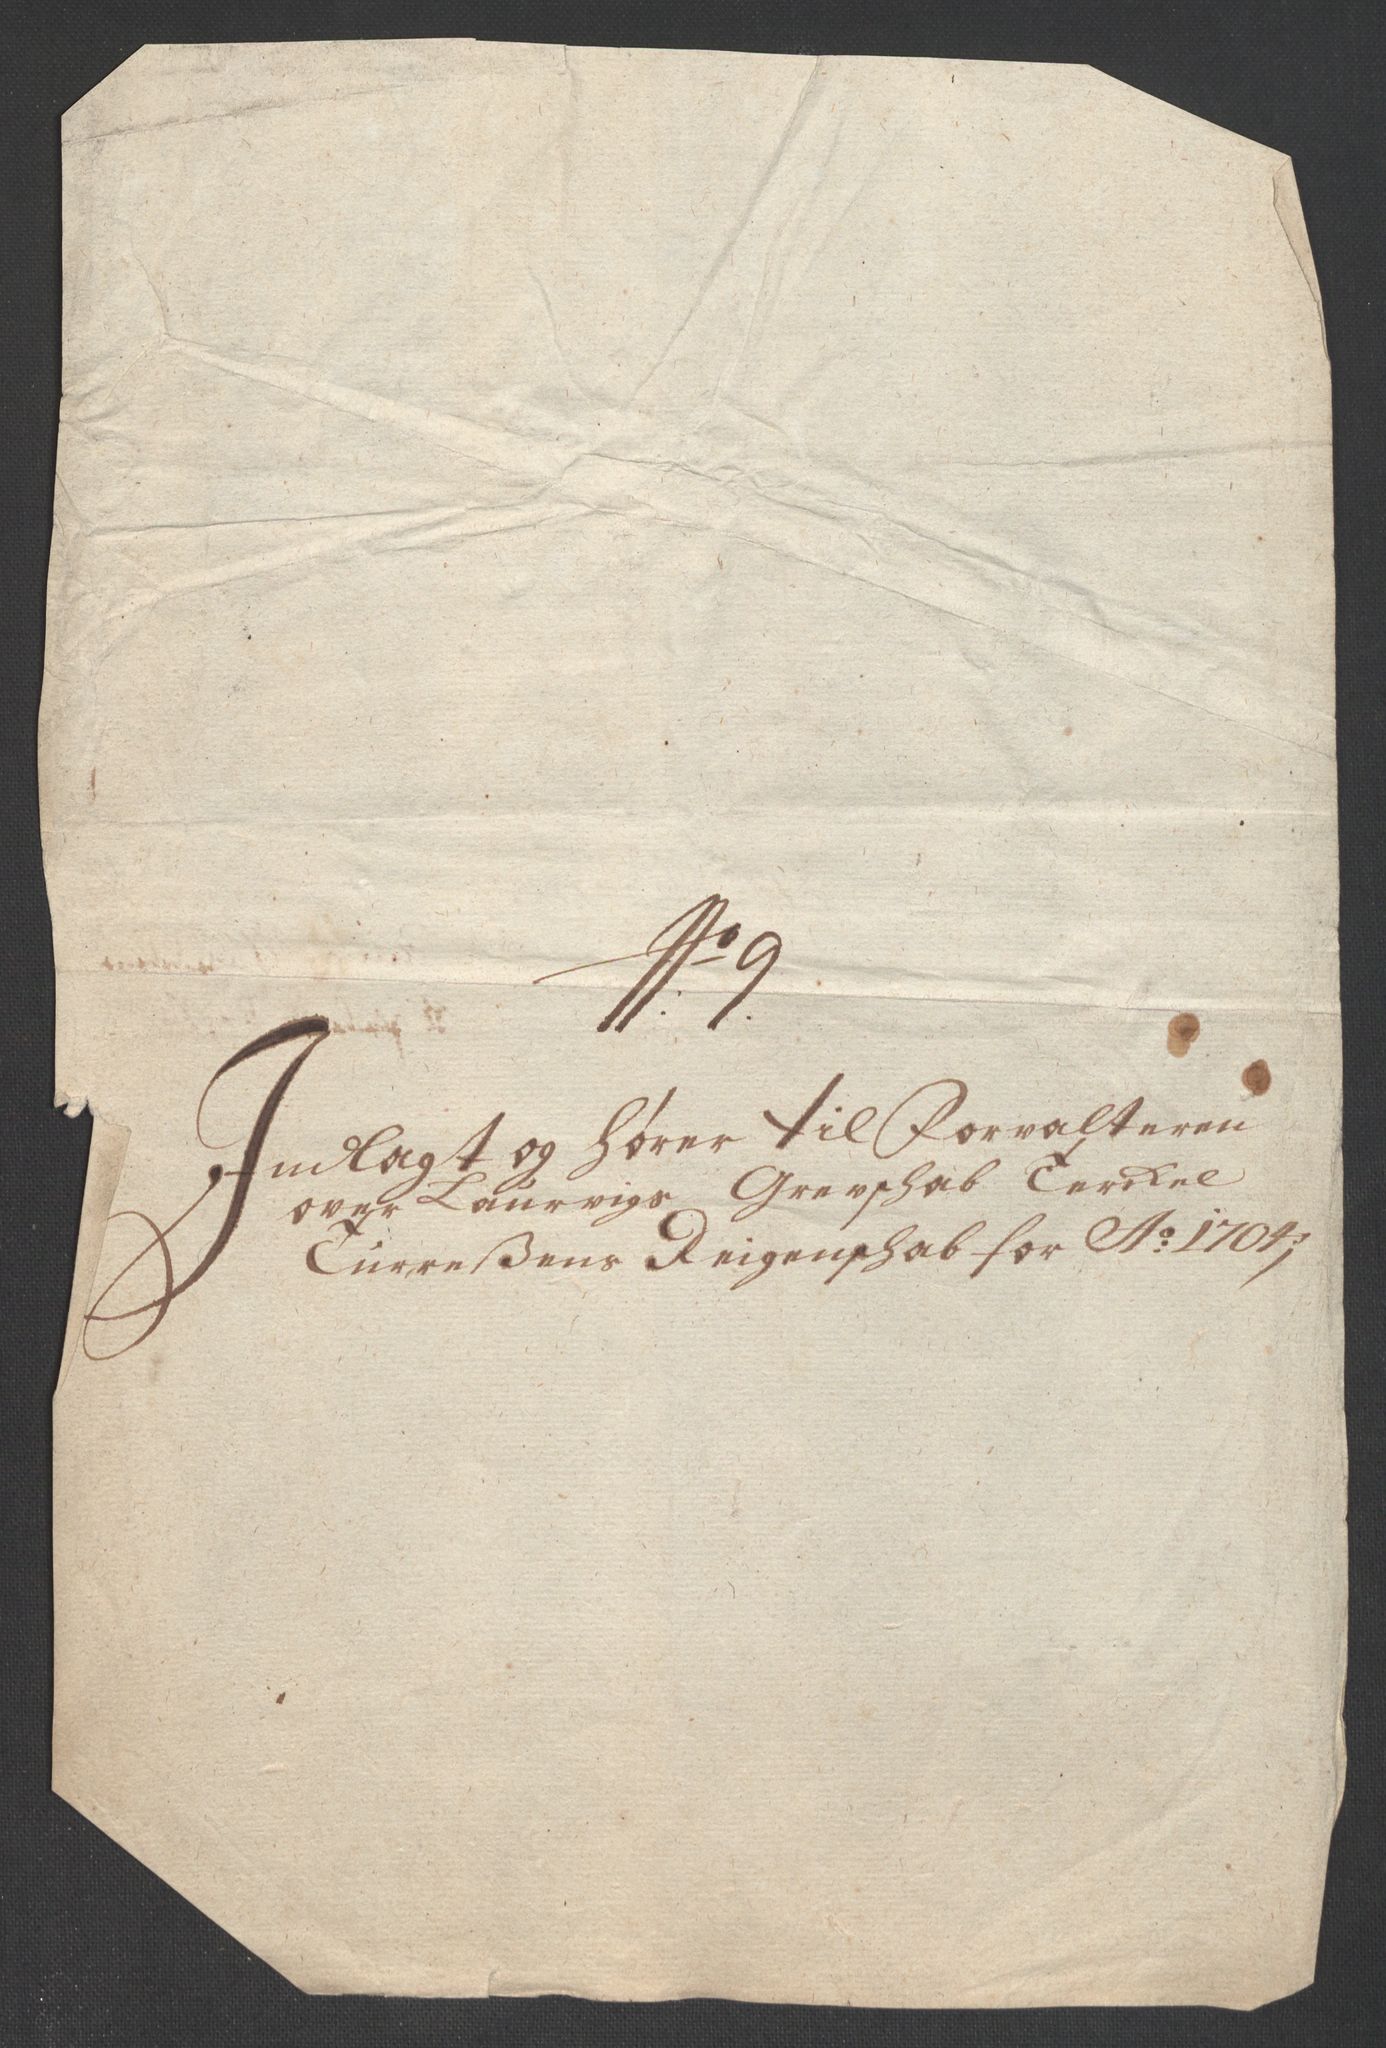 No 9.
Indlagt og hører til Forvalteren
over Laurvigs Grevschab Terckel
Turreßens Reigenschab for Ao: 1704;